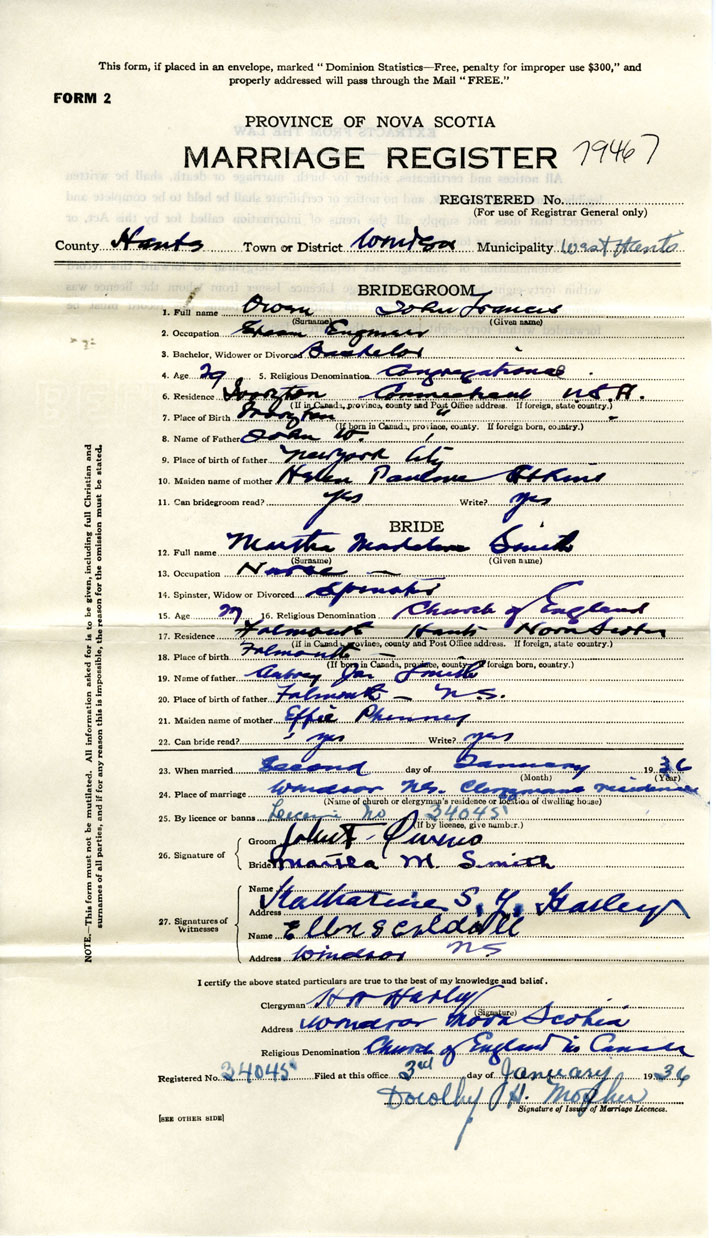 This form, if placed in an envelope, marked "Dominion Statistics—Free, penalty for improper use $300," and
properly addressed will pass through the Mail "FREE."
FORM 2
PROVINCE OF NOVA SCOTIA
MARRIAGE REGISTER 79467
REGISTERED No.
(For use of Registrar General only)
County Hants Town or District Windsor Municipality West Hants
BRIDEGROOM
1. Full name Owen John Francis
(Surname) (Given name)
2. Occupation Engineer
3. Bachelor, Widower or Divorced Bachelor
4. Age 29 5. Religious Denomination Congregational
6. Residence Connecticut U.S.A.
(If in Canada, province, county and Post Office address. If foreign, state country.)
7. Place of Birth " "
(If born in Canada, province, county. If foreign born, country.)
8. Name of Father John W.
9. Place of birth of father New York City
10. Maiden name of mother Helen Pauline Atkins
11. Can bridegroom read? yes Write? yes
BRIDE
12. Full name Martha Madeline Smith
(Surname) (Given name)
13. Occupation Nurse —
14. Spinster, Widow or Divorced Spinster
15. Age 27 16. Religious Denomination Church of England
17. Residence Falmouth Hants Nova Scotia
(If in Canada, provinces, county and Post Office address. If foreign, state country.)
18. Place of birth Falmouth —
(If born in Canada, province, county. If foreign born, country.)
19. Name of father Aubrey Smith
20. Place of birth of father Falmouth — N.S.
21. Maiden name of mother Effie Phinney
22. Can bride read? yes Write? yes
23. When married Second day of January 1936
(Month) (Year)
24. Place of marriage Windsor N.S. Clergymans residence
(Name of church or clergyman's residence or location of dwelling house)
25. By licence or banns Licence No 34045
(If by licence, give number.)
26. Signature of
Groom John F. Owen
Bride Martha M. Smith
27. Signatures of Witnesses
Name Katharine S. Y. Harley
Address
Name Ellen S Caldwell
Address Windsor NS
I certify the above stated particulars are true to the best of my knowledge and belief.
Clergyman Harley
(Signature)
Address Windsor Nova Scotia
Religious Denomination Church of England in Canada
Registered No. 34045 Filed at this office 3rd day of January 1936
Dorothy H. Mosher
Signature of Issuer of Marriage Licences.
[SEE OTHER SIDE]
NOTE.—This form must not be mutilated. All information asked for is to be given, including full Christian and
surnames of all parties, and if for any reason this is impossible, the reason for the omission must be stated.